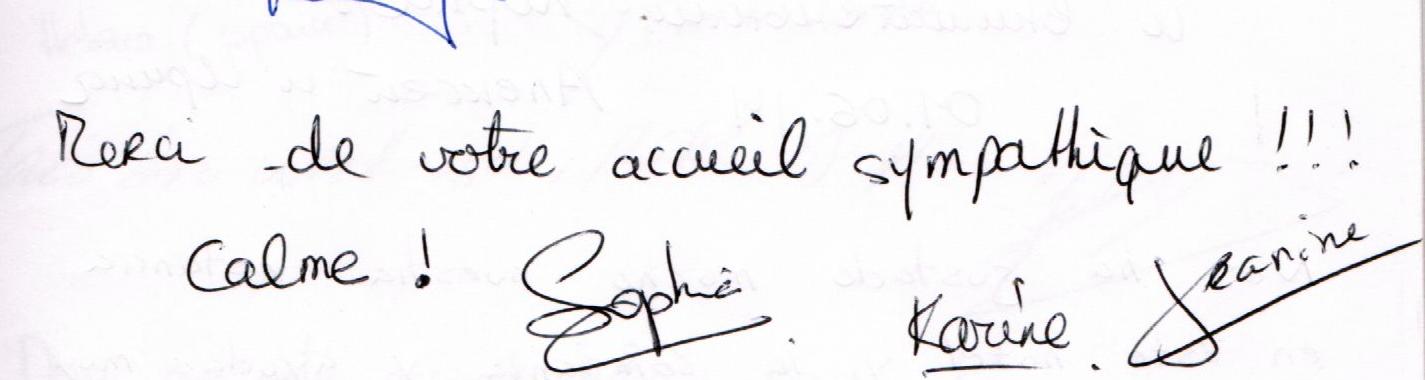 Merci de votre accueil sympathique !!!
Calme ! Sophie. Karine. Jeanine